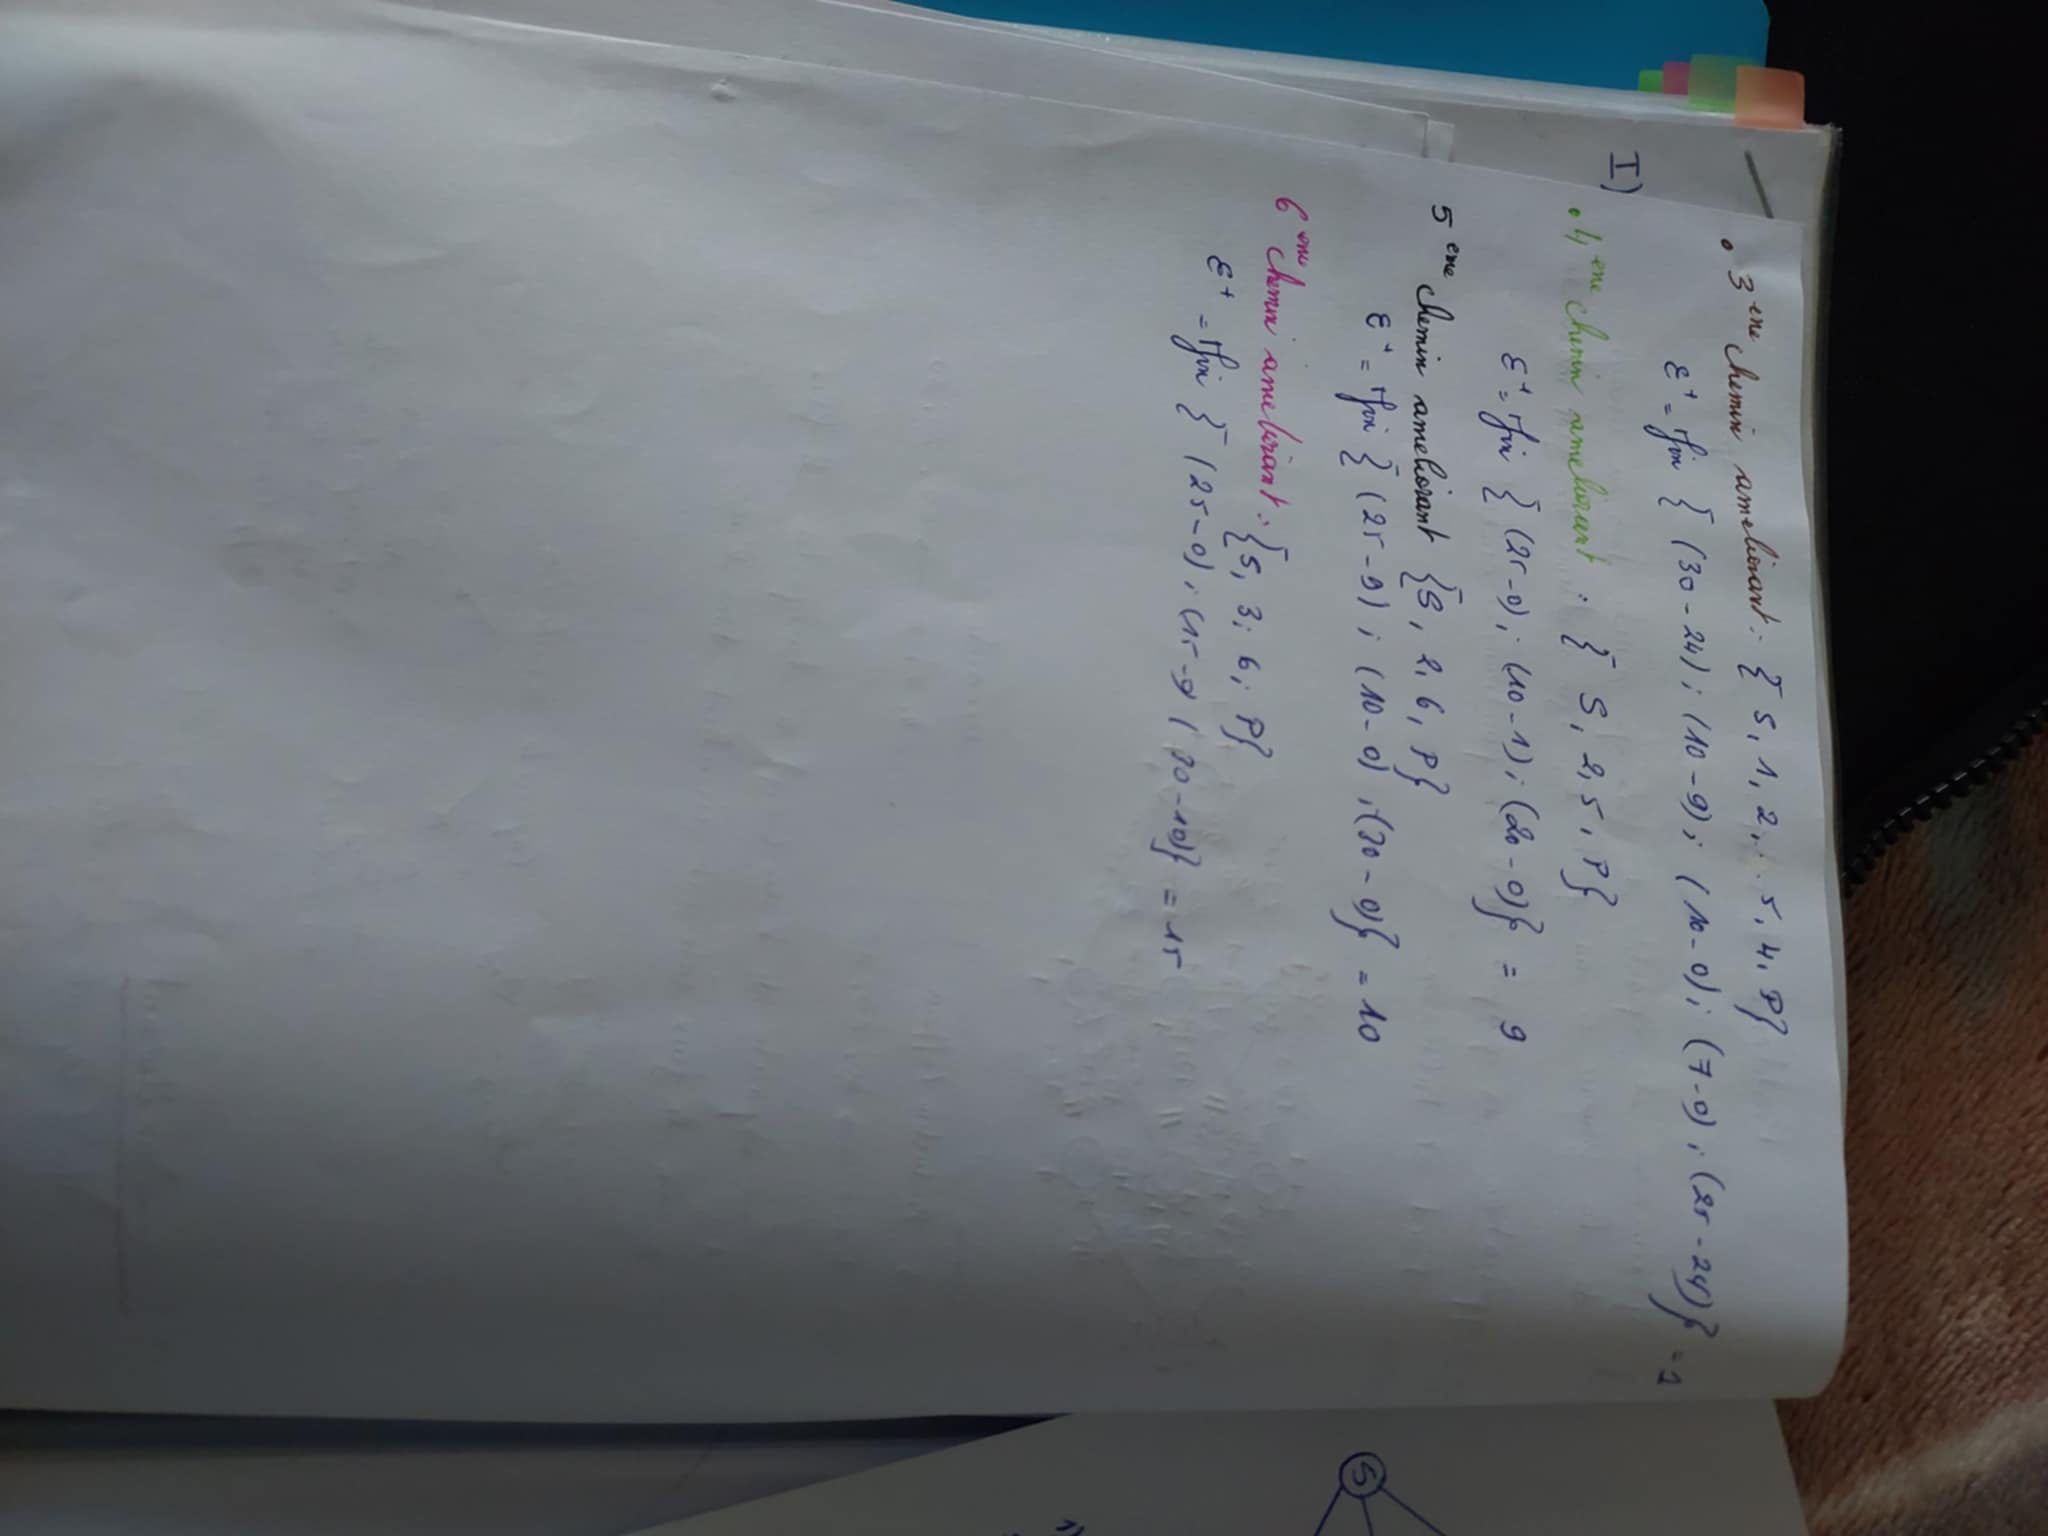 • 3 eme chemin ameliorant : { S, 1, 2, 5, 4, P}
ε+ = Min { (30 - 24) ; (10 - 9) ; (10 - 0) ; (7 - 0) ; (25 - 24)} = 1
I)
• 4 eme chemin ameliorant : { S, 2, 5, P}
ε+ = Min { (25 - 0) ; (10 - 1) ; (20 - 0)} = 9
5 eme chemin ameliorant {S, 2, 6, P}
ε+ = Min { (25 - 9) ; (10 - 0) ; (30 - 0)} = 10
6 eme chemin ameliorant : {S, 3; 6; P}
ε+ = Min { (25 - 0) ; (15 - 9) ( 30 - 10)} = 15
S
1)